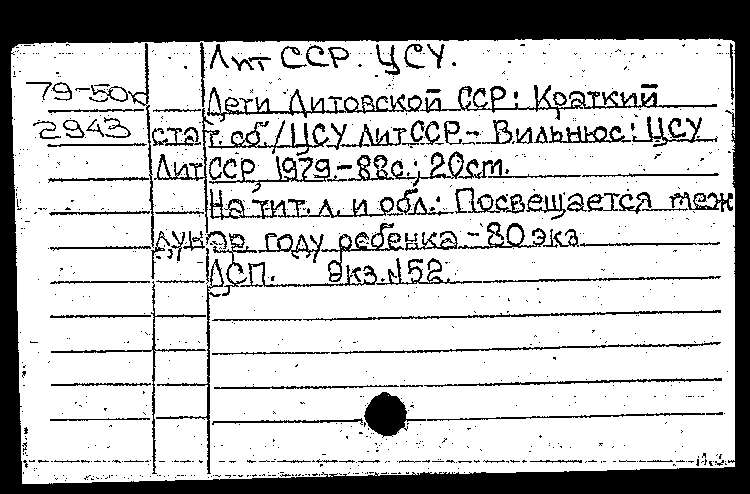 Лит ССР. ЦСУ.
79-50к
Дети Литовской ССР: Краткий
2943
стат. сб./ЦСУ ЛитССР.- Вильнюс: ЦСУ
ЛитССР, 1979.-88с.; 20см.
На тит. л. и обл.: Посвещается меж
дунар. году ребенка - 80 экз
ДСП. Экз.№52.